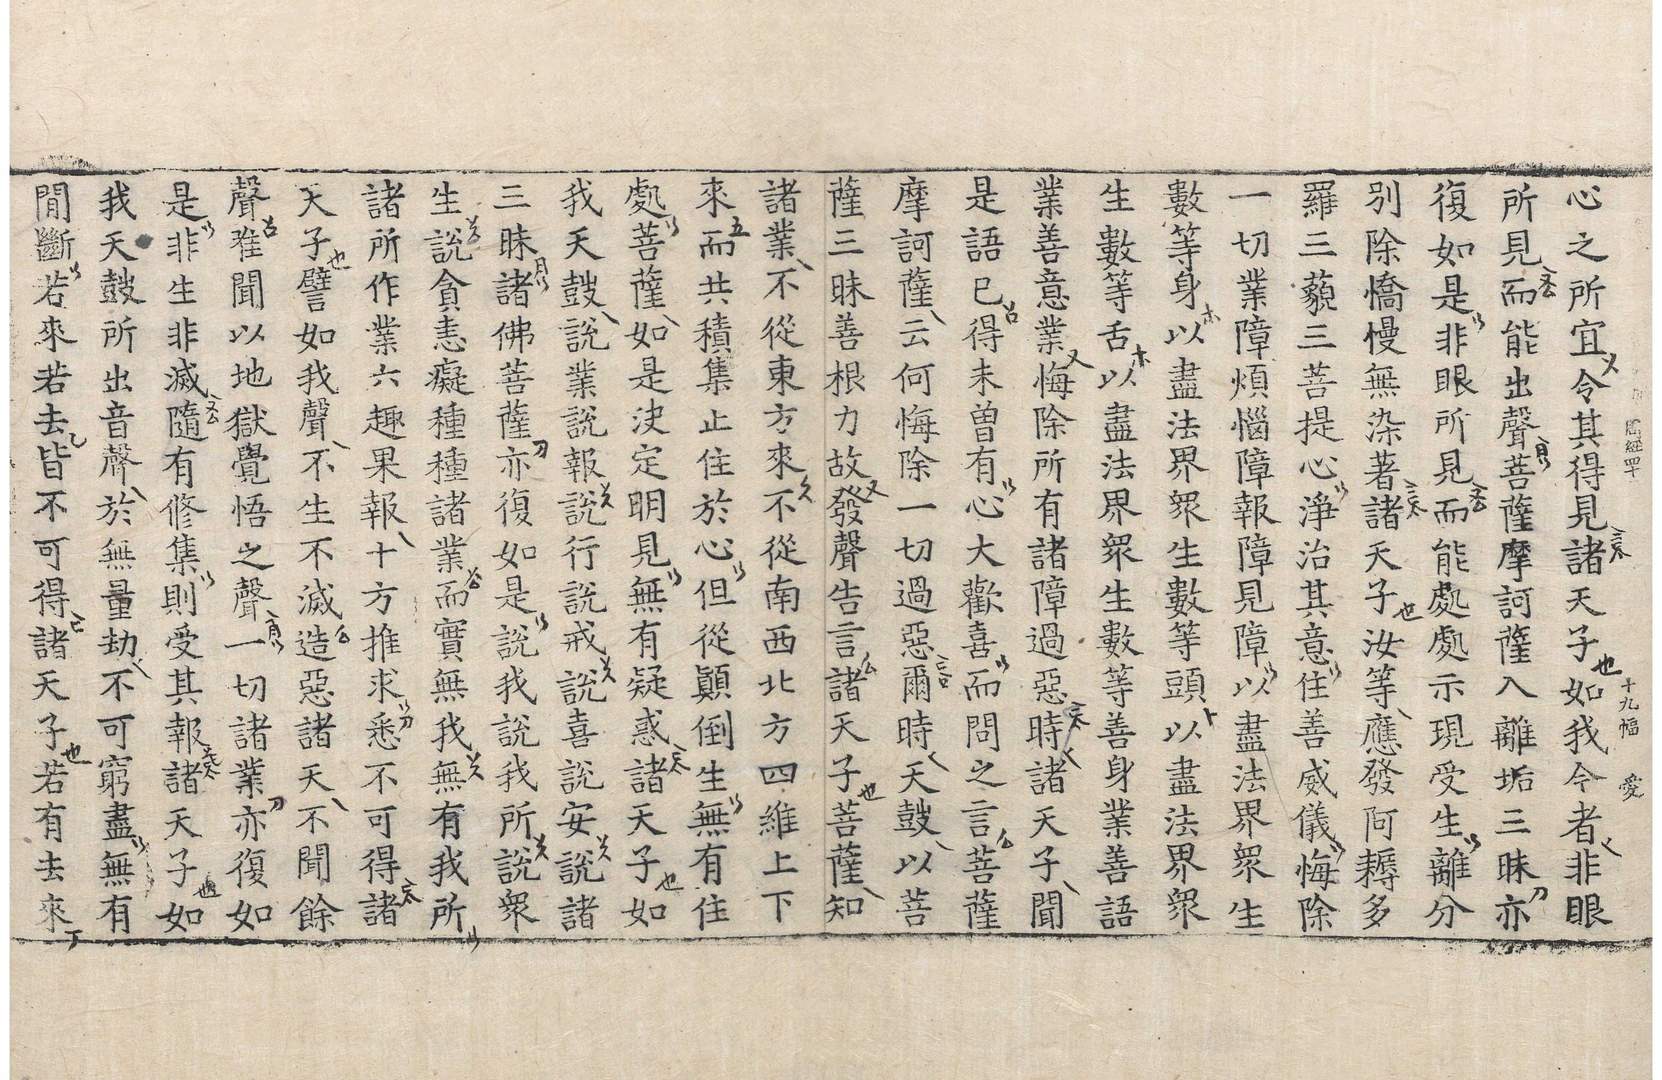 周經 十九幅 愛
心之所宜令其得見諸天子如我今者非眼
所見而能出聲菩薩摩訶薩入離垢三昧亦
復如是非眼所見而能處處示現受生離分
別除憍慢無染著諸天子汝等應發阿耨多
羅三藐三菩提心淨治其意住善威儀悔除
一切業障煩惱障報障見障以盡法界眾生
數等身以盡法界眾生數等頭以盡法界眾
生數等舌以盡法界眾生數等善身業善語
業善意業悔除所有諸障過惡時諸天子聞
是語已得未曾有心大歡喜而問之言菩薩
摩訶薩云何悔除一切過惡爾時天鼓以菩
薩三昧善根力故發聲告言諸天子菩薩知
諸業不從東方來不從南西北方四維上下
來而共積集止住於心但從顛倒生無有住
處菩薩如是決定明見無有疑惑諸天子如
我天鼓說業說報說行說戒說喜說安說諸
三昧諸佛菩薩亦復如是說我說我所說眾
生說貪恚癡種種諸業而實無我無有我所
諸所作業六趣果報十方推求悉不可得諸
天子譬如我聲不生不滅造惡諸天不聞餘
聲唯聞以地獄覺悟之聲一切諸業亦復如
是非生非滅隨有修集則受其報諸天子如
我天鼓所出音聲於無量劫不可窮盡無有
間斷若來若去皆不可得諸天子若有去來